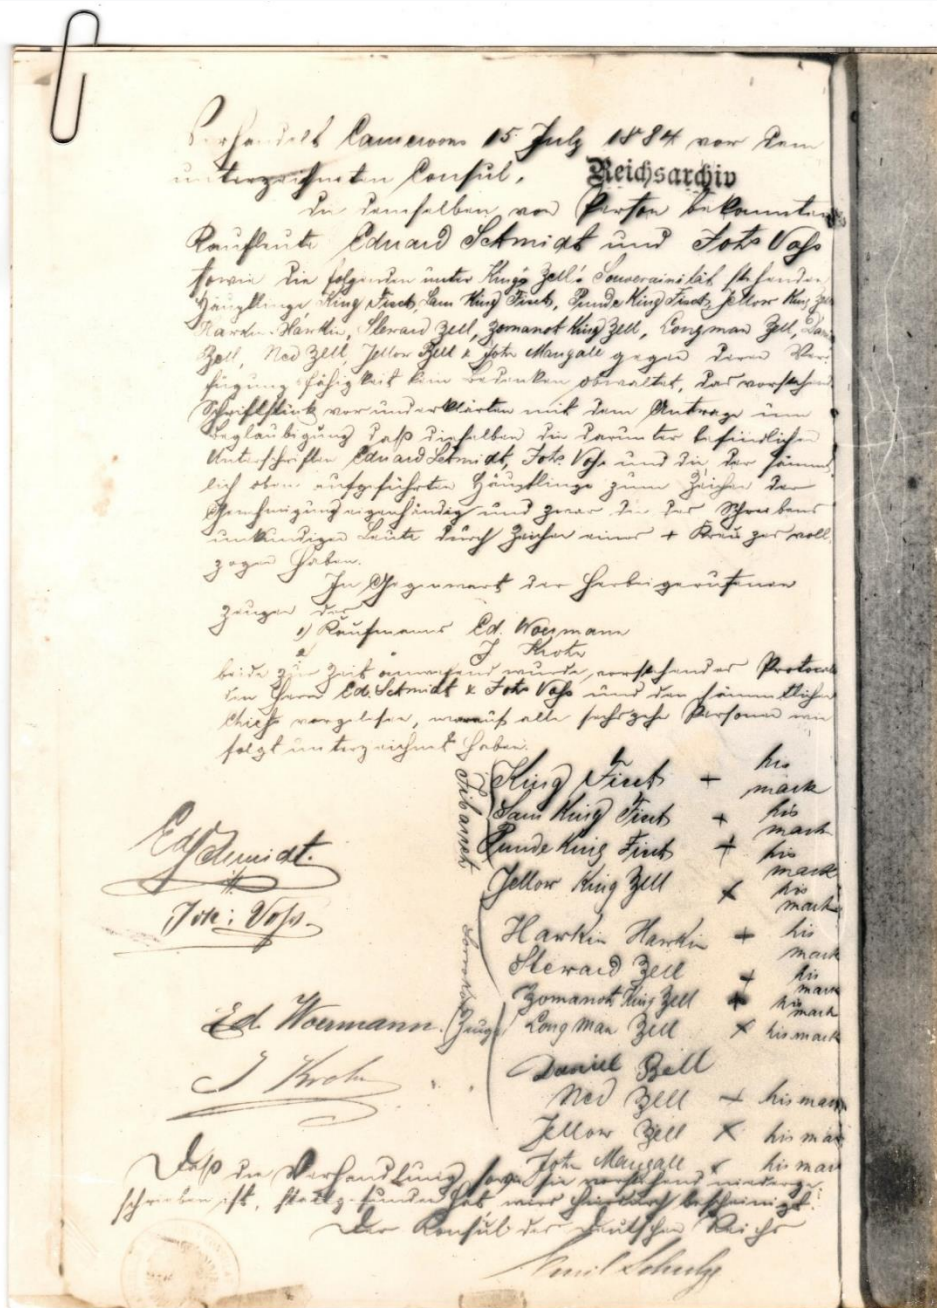 Verhandelt Cameroons 15 July 1884 vor dem
unterzeichneten Consul.
Reichsarchiv
Die demselben von Person bekannten
Kaufleute Eduard Schmidt und Johs Voss
sowie die folgenden unter King's Bell's Souverainität stehenden
Häuptlinge King Fieet, Sam King Fieet, Punde King Fieet, Jellow King Bell
Harkin Harkin, Steward Bell, Bomanoh King Bell, Longman Bell, Dan
Bell, Ned Bell, Jellow Bell & John Mangall gegen deren Ver-
fügungsfähigkeit kein Bedenken obwaltet, das vorstehende
Schriftstück vor und erklärten mit dem Antrage um
Beglaubigung daß dieselben die darunter befindlichen
Unterschriften Eduard Schmidt, Johs Voss und die der sämmt-
lich oben aufgeführten Häuptlinge zum Zeichen der
Genehmigung eigenhändig und zwar die des Schreibens
unkundigen Leute durch Zeichen eines + Kreuzes voll-
zogen haben.
In Gegenwart der herbeigerufenen
Zeugen des
1) Kaufmanns Ed. Woermann
2 J Krohn
beide zur Zeit anwesend wurde vorstehendes Protocoll
den Herrn Ed Schmidt & Johs Voss und den sämmtlichen
Chiefs vorgelesen, worauf alle sechszehn Personen wie
folgt unterzeichnet haben.
King Fieet + his mark
Sam King Fieet + his mark
Punde King Fieet + his mark
Ed Schmidt.
Jellow King Bell x his mark
Joh: Voss.
Harkin Harkin + his mark
Steward Bell + his mark
Bomanoh King Bell + his mark
Ed. Woermann. (Zeuge)
Long Man Bell x his mark
J Krohn
Daniel Bell
Ned Bell + his mark
Jellow Bell x his mark
John Mangall x his mark
Daß die Verhandlung so wie sie vorstehend niederge-
schrieben ist, stattgefunden hat, wird hierdurch bescheinigt.
Der Konsul des Deutschen Reichs
Emil Schulze